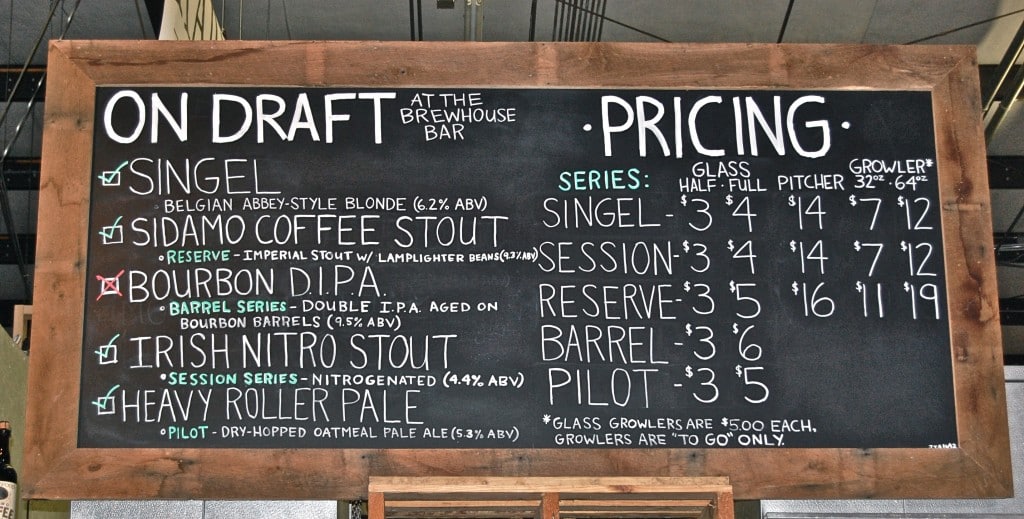 ON DRAFT AT THE BREWHOUSE BAR
SINGEL
BELGIAN ABBEY-STYLE BLONDE (6.2% ABV)
SIDAMO COFFEE STOUT
RESERVE - IMPERIAL STOUT W/ LAMPLIGHTER BEANS (9.3% ABV)
BOURBON D.I.P.A.
BARREL SERIES - DOUBLE I.P.A. AGED ON
BOURBON BARRELS (9.5% ABV)
IRISH NITRO STOUT
SESSION SERIES - NITROGENATED (4.4% ABV)
HEAVY ROLLER PALE
PILOT - DRY-HOPPED OATMEAL PALE ALE (5.3% ABV)
· PRICING ·
GLASS GROWLER*
SERIES: HALF · FULL PITCHER 32oz · 64oz
SINGEL - $3 $4 $14 $7 $12
SESSION - $3 $4 $14 $7 $12
RESERVE - $3 $5 $16 $11 $19
BARREL - $3 $6
PILOT - $3 $5
*GLASS GROWLERS ARE $5.00 EACH.
GROWLERS ARE "TO GO" ONLY.